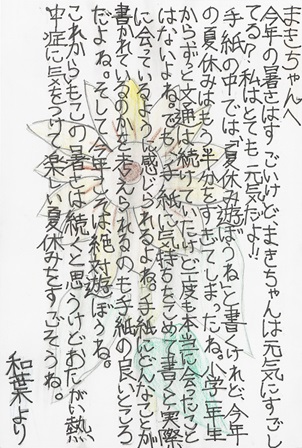 まきちゃんへ
今年の暑さはすごいけどまきちゃんは元気にすごし
てる?私はとても元気だよ!!
手紙の中では「夏休み遊ぼうね」と書くけれど、今年
の夏休みはもう半分をすぎてしまったね。小学一年生
からずっと文通は続けていたけど一度も本当に会ったこと
はないよね。でも、手紙に気持ちをこめて書くと実際
に会っているように感じられるよね。手紙にどんなことが
書かれているのかを考えられるのも手紙の良いところ
だよね。そして今年こそは絶対遊ぼうね。
これからもこの暑さは続くと思うけどおたがい熱
中症に気をつけて楽しい夏休みをすごそうね。
和葉より